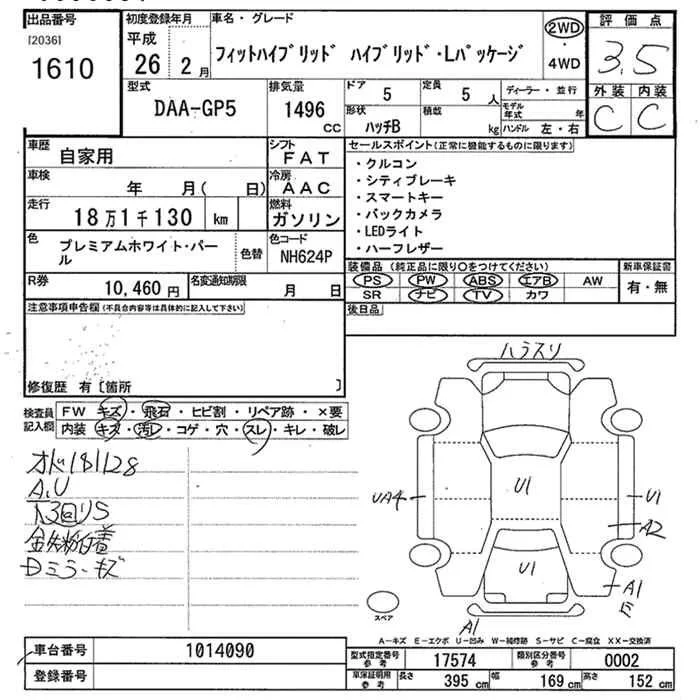 出品番号
[2036]
1610
初度登録年月
平成
26 2 月
車名・グレード
フィットハイブリッド ハイブリッド・Lパッケージ
2WD
・
4WD
評価点
3.5
外装 内装
C C
型式
DAA-GP5
排気量
1496
CC
ドア
5
定員
5 人
形状
ハッチB
積数
kg
ディーラー・並行
モデル
年式 年
ハンドル 左・右
車歴
自家用
シフト
FAT
車検
年 月( 日)
冷房
AAC
走行
18万1千130 km
燃料
ガソリン
色
プレミアムホワイト・パー
ル
色替
色コード
NH624P
R券
10,460 円
名変通知期限
月 日
セールスポイント(正常に機能するものに限ります)
・クルコン
・シティブレーキ
・スマートキー
・バックカメラ
・LEDライト
・ハーフレザー
装備品 (純正品に限り○をつけてください)
PS PW ABS エアB AW
SR ナビ TV カワ
新車保証書
有・無
後日品
注意事項申告欄(不具合内容等は具体的に記入して下さい)
修復歴 有〔箇所 〕
検査員
記入欄
FW キズ・飛石・ヒビ割・リペア跡・×要
内装 キズ・汚レ・コゲ・穴・スレ・キレ・破レ
オド181128
A,U
下3回リS
金失粉付着
Dミラーキズ
ハラスリ
U1
UA4
U1
A2
U1
A1
E
A1
スペア
A-キズ E-エクボ U-凹み W-補修跡 S-サビ C-腐食 XX-交換済
車台番号
1014090
登録番号
型式指定番号
参考
17574
類別区分番号
参考
0002
車庫証明用
参考
長さ
395 cm
幅
169 cm
高さ
152 cm